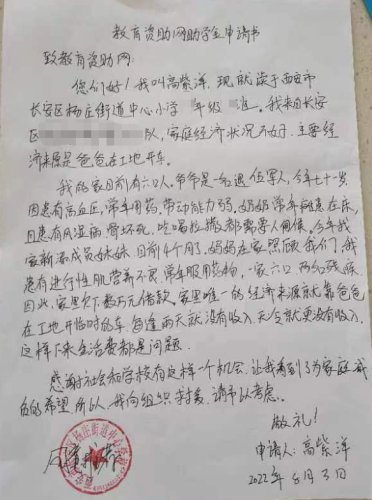 教育资助网助学金申请书
致教育资助网：
您们好！我叫高紫洋，现就读于西安市
长安区杨庄街道中心小学 年级 班。我来自长安
区 队，家庭经济状况不好，主要经
济来源是爸爸在工地开车。
我的家目前有六口人，爷爷是一名退伍军人，今年七十岁，
因患有高血压，常年用药，劳动能力弱，奶奶常年瘫患在床，
且患有风湿 骨坏死，吃喝拉撒都需要人伺候，今年我
家新添成员妹妹，目前4个月了，妈妈在家照顾我们，我
患有进行性肌营养不良，常年服用药物，一家六口 两个残疾，
因此，家里欠下数万元借款，家里唯一的经济来源就靠爸爸
在工地开临时的车，每逢雨天就没有收入，天冷就更没有收入，
这样下来生活费都是问题。
感谢社会和学校有这样一个机会，让我看到了为家庭减
负的希望，所以，我向组织 ，请予以考虑。
敬礼！
申请人：高紫洋
2022年6月3日
杨庄街道中心